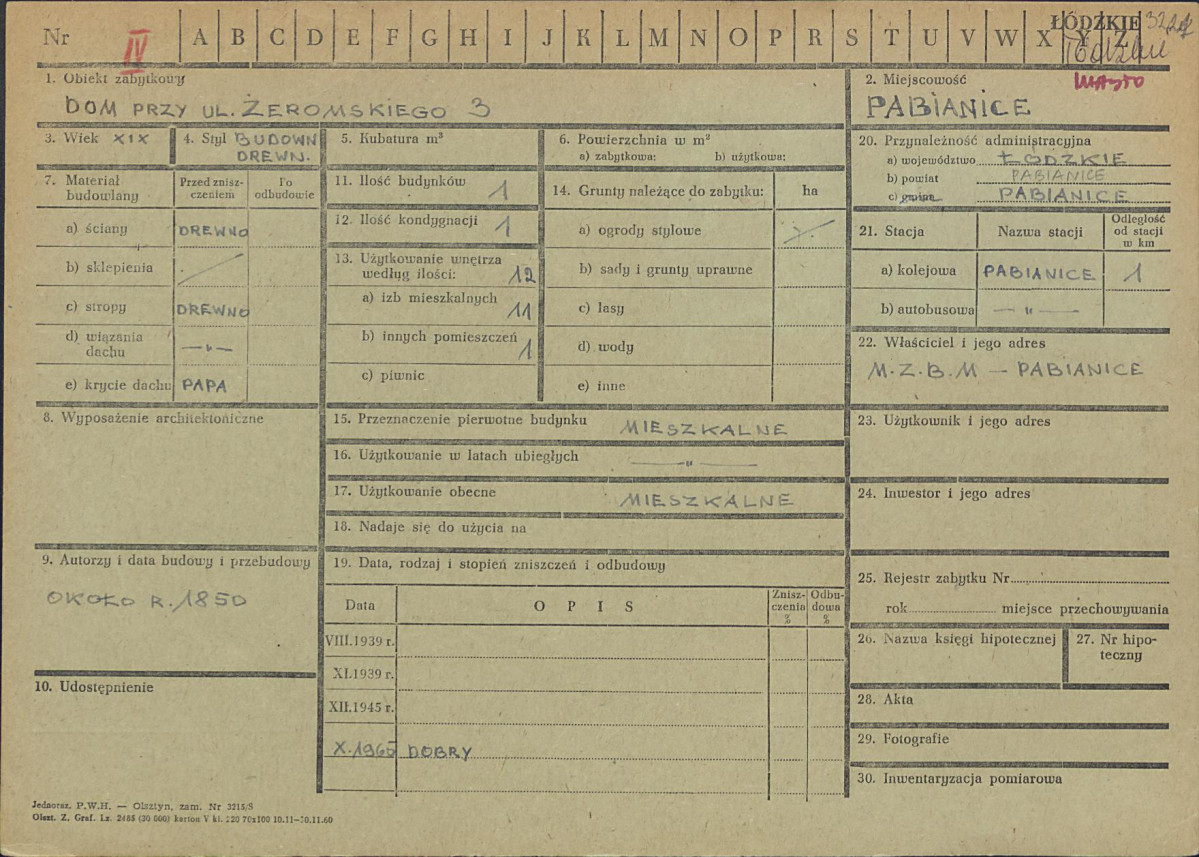 Nr IV A B C D E F G H I J K L M N O P R S T U V W X Y Z
ŁÓDZKIE
1. Obiekt zabytkowy
DOM PRZY UL. ŻEROMSKIEGO 3
2. Miejscowość miasto
PABIANICE
3. Wiek XIX
4. Styl BUDOWN
DREWN.
5. Kubatura m³
6. Powierzchnia w m²
a) zabytkowa: b) użytkowa:
7. Materiał budowlany
Przed zniszczeniem
Po odbudowie
a) ściany DREWNO
b) sklepienia
c) stropy DREWNO
d) wiązania dachu —"—
e) krycie dachu PAPA
8. Wyposażenie architektoniczne
9. Autorzy i data budowy i przebudowy
OKOŁO R. 1850
10. Udostępnienie
11. Ilość budynków 1
12. Ilość kondygnacji 1
13. Użytkowanie wnętrza
według ilości: 12
a) izb mieszkalnych 11
b) innych pomieszczeń 1
c) piwnic
14. Grunty należące do zabytku: ha
a) ogrody stylowe
b) sady i grunty uprawne
c) lasy
d) wody
e) inne
15. Przeznaczenie pierwotne budynku MIESZKALNE
16. Użytkowanie w latach ubiegłych —"—
17. Użytkowanie obecne MIESZKALNE
18. Nadaje się do użycia na
19. Data, rodzaj i stopień zniszczeń i odbudowy
Data OPIS Zniszczenia % Odbudowa %
VIII.1939 r.
XI.1939 r.
XII.1945 r.
X.1965 DOBRY
20. Przynależność administracyjna
a) województwo ŁÓDZKIE
b) powiat PABIANICE
c) gmina PABIANICE
21. Stacja Nazwa stacji Odległość od stacji w km
a) kolejowa PABIANICE 1
b) autobusowa —"—
22. Właściciel i jego adres
M.Z.B.M — PABIANICE
23. Użytkownik i jego adres
24. Inwestor i jego adres
25. Rejestr zabytku Nr
rok miejsce przechowywania
26. Nazwa księgi hipotecznej
27. Nr hipoteczny
28. Akta
29. Fotografie
30. Inwentaryzacja pomiarowa
Jednoraz. P.W.H. — Olsztyn, zam. Nr 3215/S
Olszt. Z. Graf. Lz. 2485 (30 000) karton V kl. 220 70x100 10.11—10.11.60